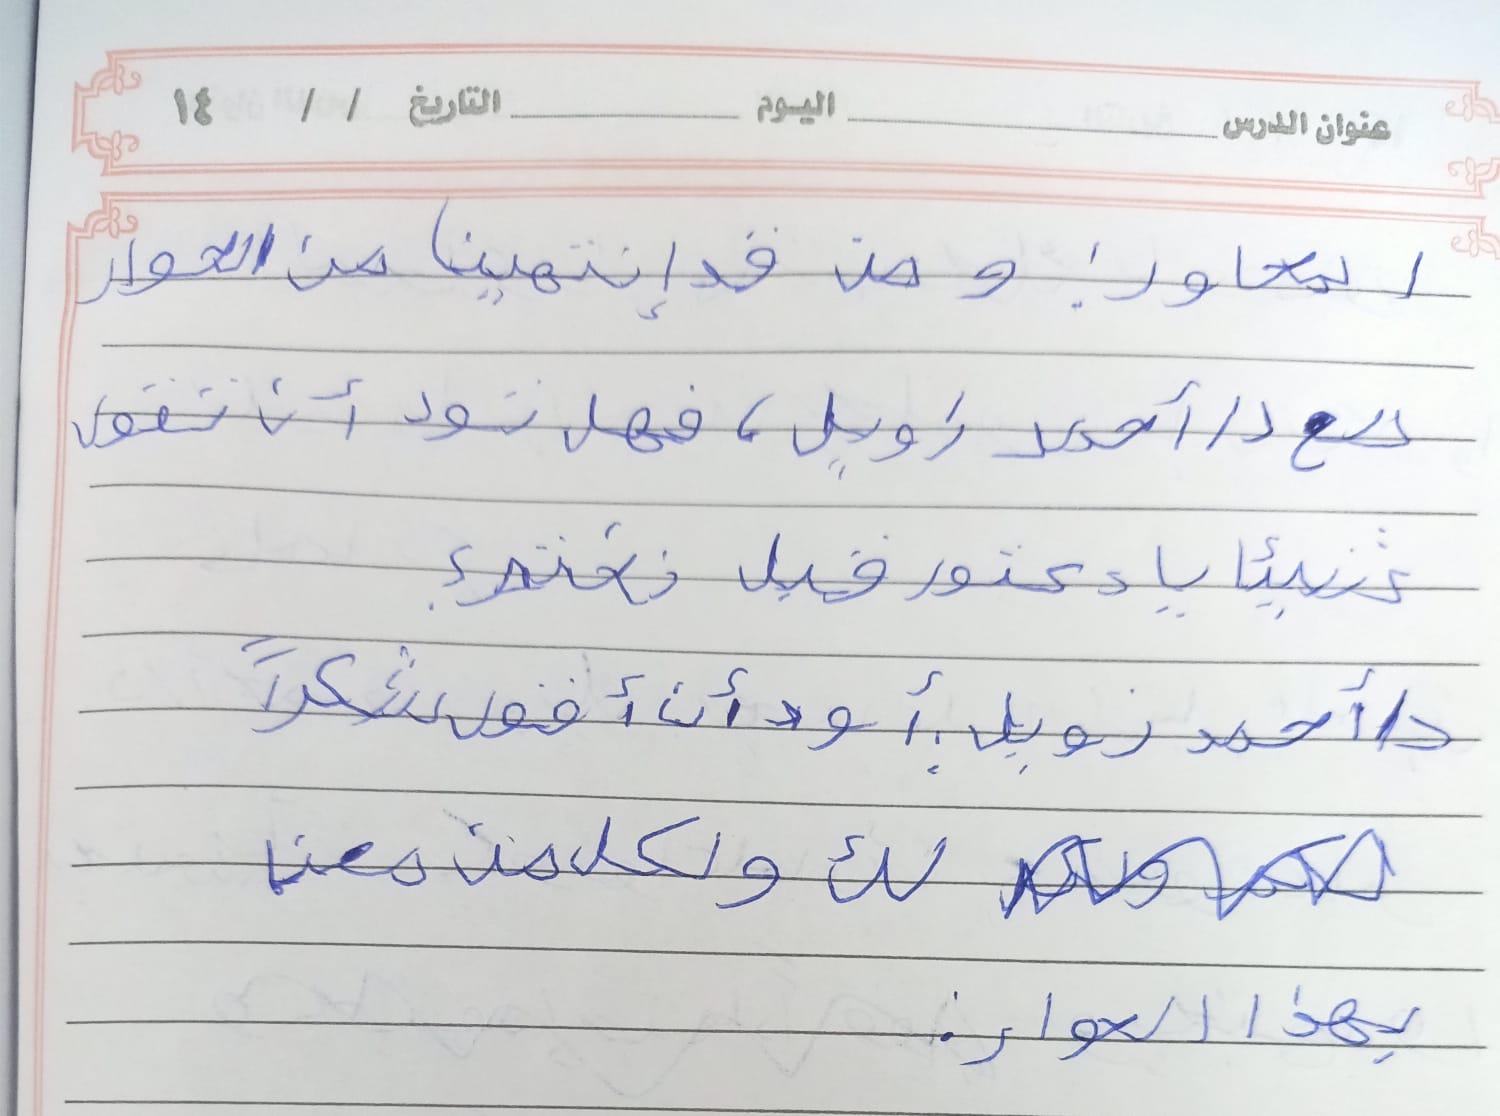 عنوان الدرس اليوم التاريخ / / ١٤
المحاور: و من قد إنتهينا من الحوار
مع د/ أحمد زويل، فهل تود أن تقول
شيئا يا دكتور قبل نختم؟
د/ أحمد زويل: أود أن أقول شكراً
لك ولكل من معنا
بهذا الحوار.